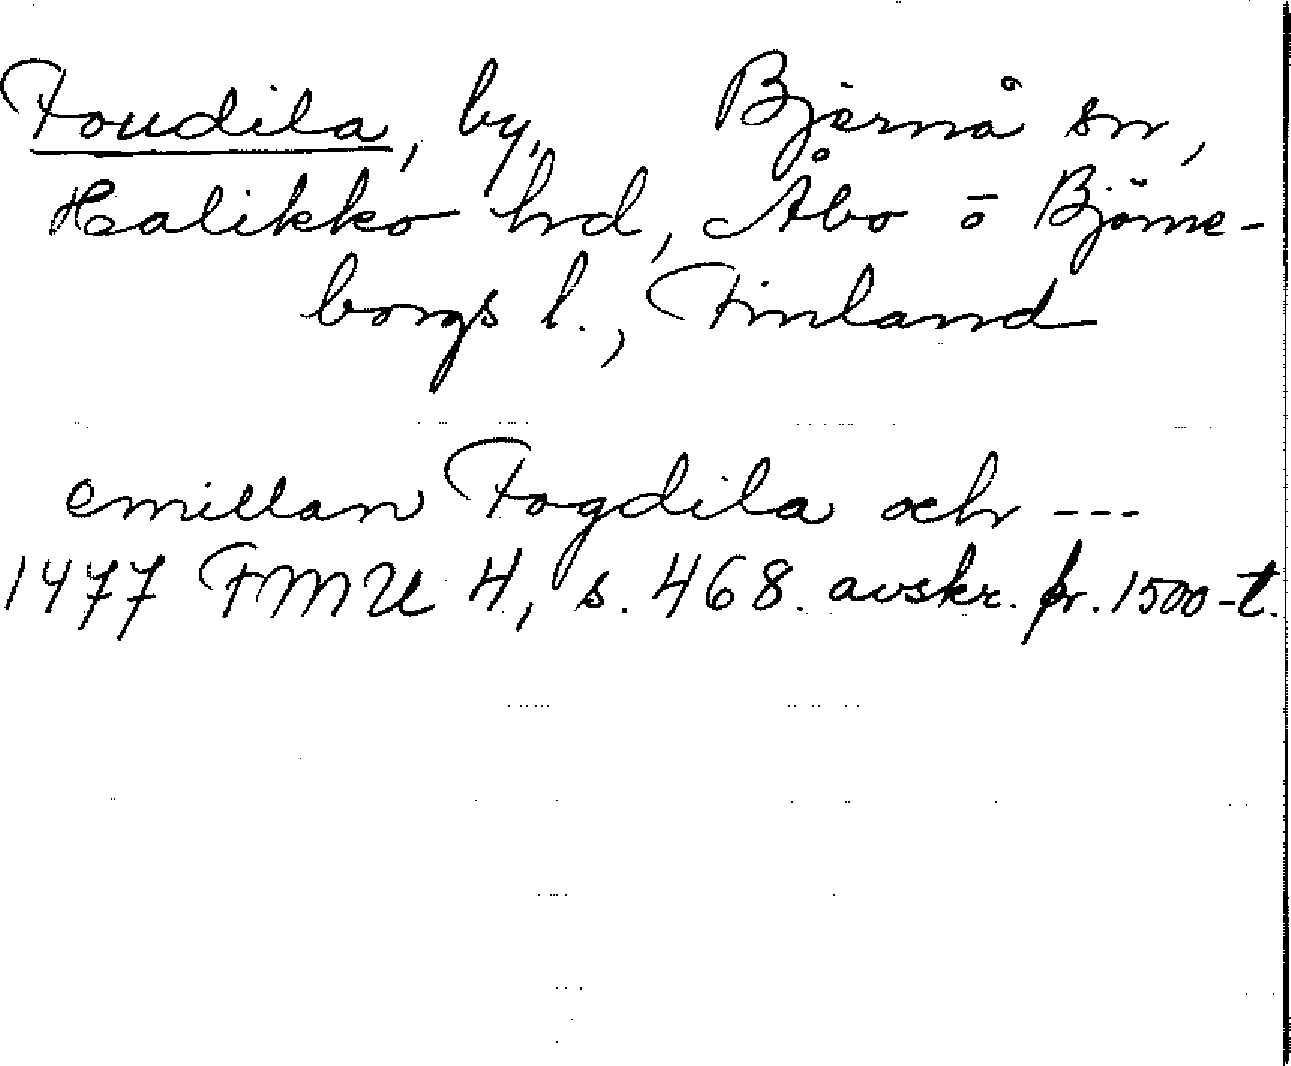 Foudila, by, Bjärnå sn,
Halikko hrd, Åbo o Björne-
borgs l., Finland
emillan Fogdila och ---
1477 FMU 4, s. 468. avskr. fr. 1500-t.